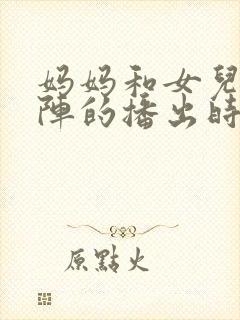 妈妈和女兒
陣的播出時
原點火